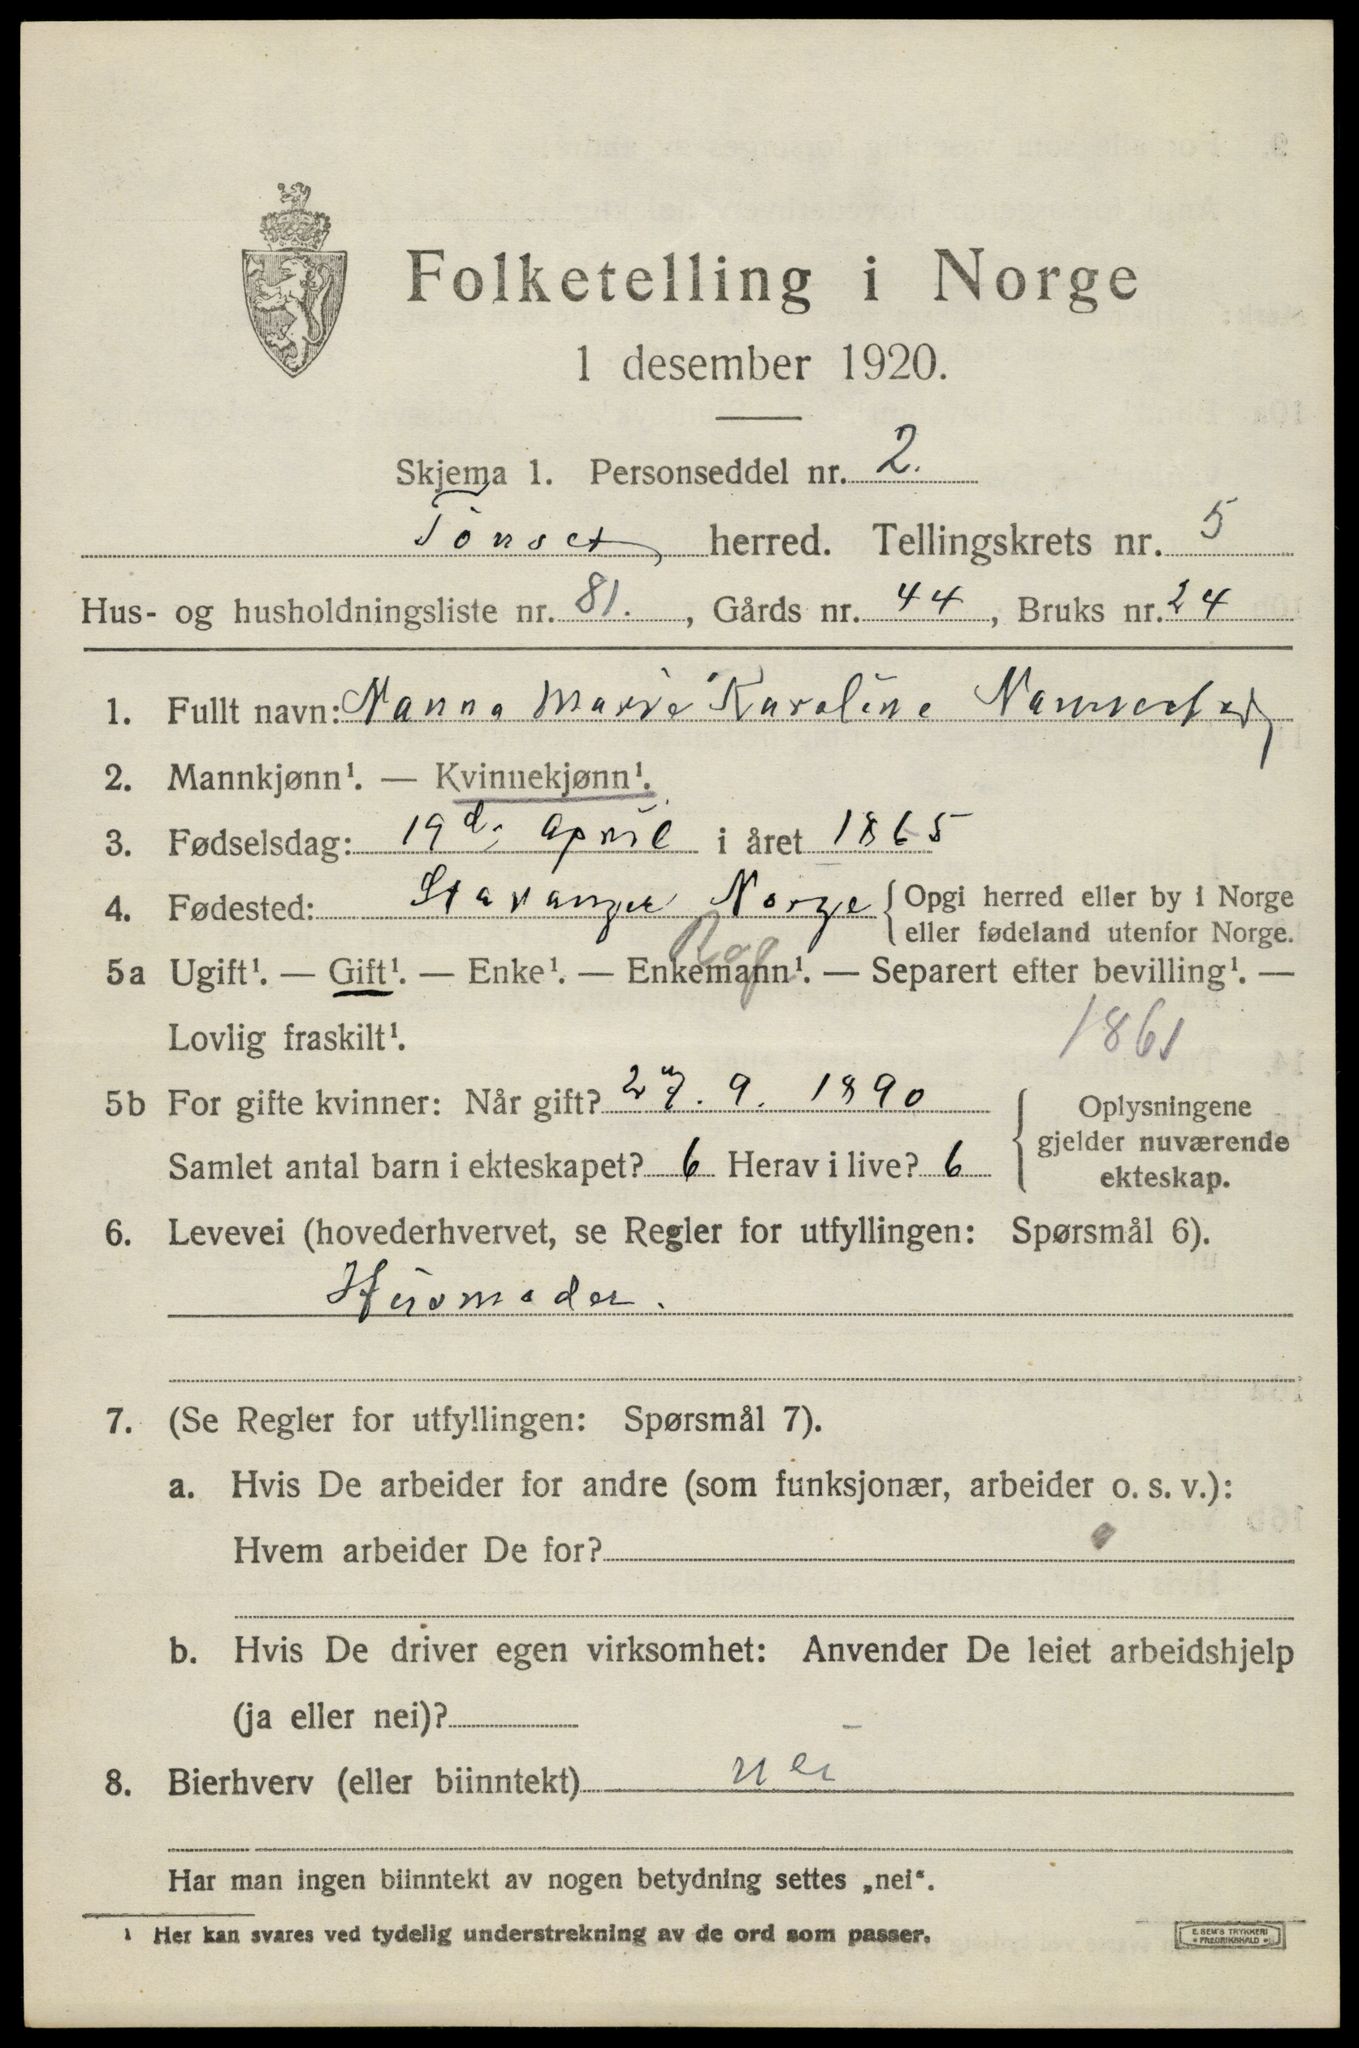 Folketelling i Norge
1 desember 1920.
Skjema 1. Personseddel nr. 2.
Tönset herred. Tellingskrets nr. 5
Hus- og husholdningsliste nr. 81. , Gårds nr. 44 , Bruks nr. 24
1. Fullt navn: Nanna Marie Karoline
2. Mannkjønn¹. — Kvinnekjønn¹.
3. Fødselsdag: 19de april i året 1865
4. Fødested: Stavanger Norge { Opgi herred eller by i Norge
eller fødeland utenfor Norge.
Rog
5a Ugift¹. — Gift¹. — Enke¹. — Enkemann¹. — Separert efter bevilling¹. —
Lovlig fraskilt¹.
1861
5b For gifte kvinner: Når gift? 27. 9. 1890 { Oplysningene
gjelder nuværende
Samlet antal barn i ekteskapet? 6 Herav i live? 6
ekteskap.
6. Levevei (hovederhvervet, se Regler for utfyllingen: Spørsmål 6).
Husmoder.
7. (Se Regler for utfyllingen: Spørsmål 7).
a. Hvis De arbeider for andre (som funksjonær, arbeider o. s. v.):
Hvem arbeider De for?
b. Hvis De driver egen virksomhet: Anvender De leiet arbeidshjelp
(ja eller nei)?
8. Bierhverv (eller biinntekt) nei
Har man ingen biinntekt av nogen betydning settes „nei“.
¹ Her kan svares ved tydelig understrekning av de ord som passer.
E. SEM'S TRYKKERI
FREDRIKSHALD